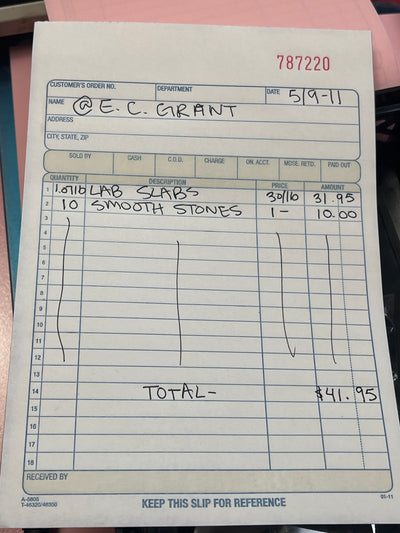 787220
CUSTOMER'S ORDER NO. DEPARTMENT DATE 5/9-11
NAME @ E. C. GRANT
ADDRESS
CITY, STATE, ZIP
SOLD BY CASH C.O.D. CHARGE ON. ACCT. MDSE. RETD. PAID OUT
QUANTITY DESCRIPTION PRICE AMOUNT
1 1.07lb LAB SLABS 30/lb 31.95
2 10 SMOOTH STONES 1- 10.00
3
4
5
6
7
8
9
10
11
12
13
14 TOTAL- $41.95
15
16
17
18
RECEIVED BY
A-5805
T-46320/46350
KEEP THIS SLIP FOR REFERENCE
01-11